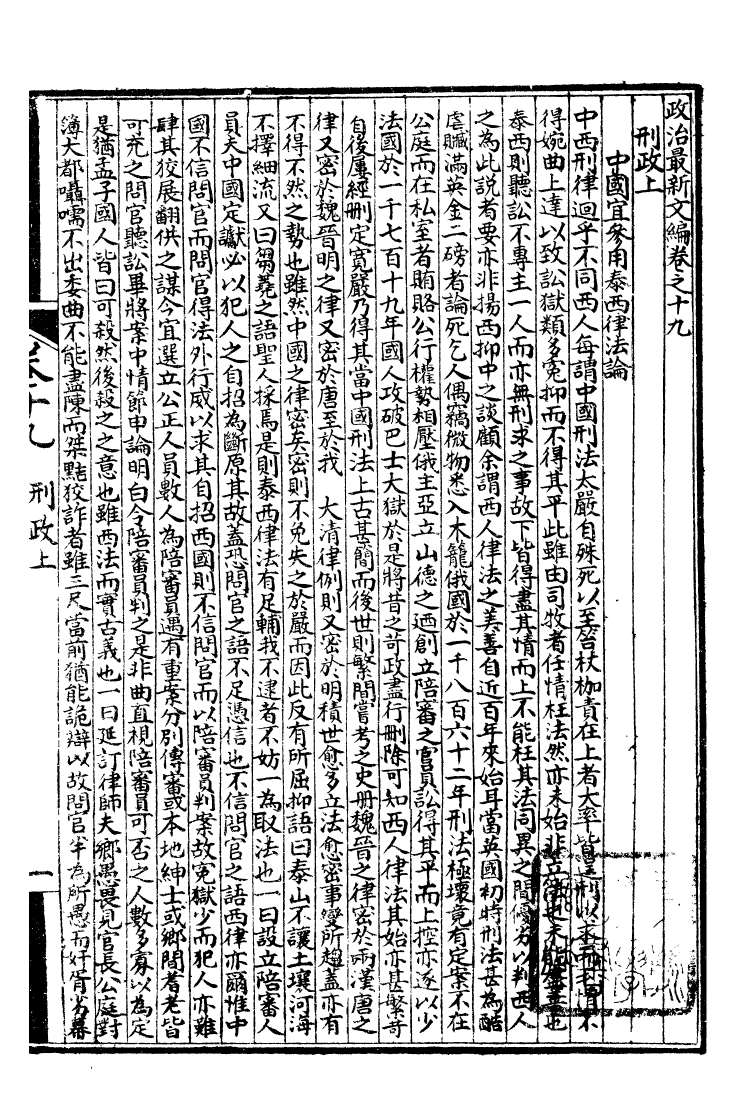 政治最新文編卷之十九
刑政上
中國宜參用泰西律法論
中西刑律迥乎不同西人每謂中國刑法太嚴自殊死以至笞杖枷責在上者大率皆以刑求而下情不
得婉曲上達以致訟獄類多冤抑而不得其平此雖由司牧者任情枉法然亦未始非也
泰西則聽訟不專主一人而亦無刑求之事故下皆得盡其情而上不能枉其法同異之間優劣以判西人
之為此說者要亦非揚西抑中之談顧余謂西人律法之美善自近百年來始耳當英國初時刑法甚為酷
虐贓滿英金二磅者論死乞人偶竊微物悉入木籠俄國於一千八百六十二年刑法極壞竟有定案不在
公庭而在私室者賄賂公行權勢相壓俄主亞立山德之迺創立陪審之官員訟得其平而上控亦遂以少
法國於一千七百十九年國人攻破巴士大獄於是將昔之苛政盡行刪除可知西人律法其始亦甚繁苛
自後屢經刪定寬嚴乃得其當中國刑法上古甚簡而後世則繁間嘗考之史册魏晉之律密於兩漢唐之
律又密於魏晉明之律又密於唐至於我　大清律例則又密於明積世愈多立法愈密事變所趨蓋亦有
不得不然之勢也雖然中國之律密矣密則不免失之於嚴而因此反有所屈抑語曰泰山不讓土壤河海
不擇細流又曰芻蕘之語聖人採焉是則泰西律法有足輔我不逮者不妨一為取法也一曰設立陪審人
員夫中國定讞必以犯人之自招為斷原其故蓋恐問官之語不足憑信也不信問官之語西律亦爾惟中
國不信問官而問官得法外行威以求其自招西國則不信問官而以陪審員判案故冤獄少而犯人亦難
肆其狡展翻供之謀今宜選立公正人員數人為陪審員遇有重案分別傳審或本地紳士或鄉閭耆老皆
可充之問官聽訟畢將案中情節申論明白令陪審員判之是非曲直視陪審員可否之人數多寡以為定
是猶孟子國人皆曰可殺然後殺之之意也雖西法而實古義也一曰延訂律師夫鄉愚畏見官長公庭對
簿大都囁嚅不出委曲不能盡陳而桀黠狡詐者雖三尺當前猶能詭辯以故問官半為所愚而奸胥劣幕
卷十九
刑政上
一